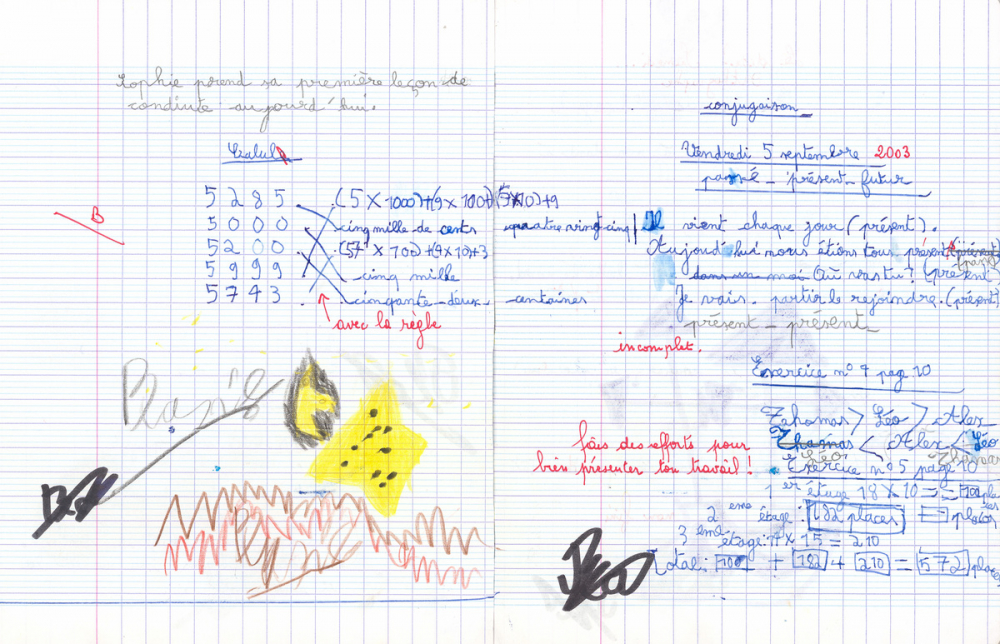 Sophie prend sa première leçon de
conduite aujourd'hui.
Calcul
B
5285 (5 x 1000)+(9 x 100)+(5x10)+9
5000 cinq mille de cents quatre vingt cinq
5200 (57 x 100)+(9 x 10)+3
5999 cinq mille
5743 cinquante-deux centaines
avec la règle
conjugaison
Vendredi 5 septembre 2003
passé - présent - futur
Il vient chaque jour (présent).
Aujoud'hui nous étions tous présent (présent)
passé
dans un moi Où vas tu? (présent
Je vais. partir le rejoindre. (présent)
présent - présent
incomplet.
Exercice n° 7 page 10
> Léo > Alex
Thomas < Alex < Léo
Léo Thomas
fais des efforts pour
bien présenter ton travail!
Exercice n° 5 page 10
1er étage 18 x 10 =
2eme étage: 182 places places
3eme étage: 14 x 15 = 210
Total: + 182 + 210 = 572 places